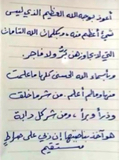 أعوذ بوجه الله العظيم الذي ليس
شئ أعظم منه وبكلمات الله التامات
التي لا يجاوزهن بر ولا فاجر
وبأسماء الله الحسنى كلها ما علمت
منها وما لم أعلم من شر ما خلق
وذرأ وبرأ ومن شر كل دابة
هو آخذ بناصيتها إن ربي على صراط
مستقيم